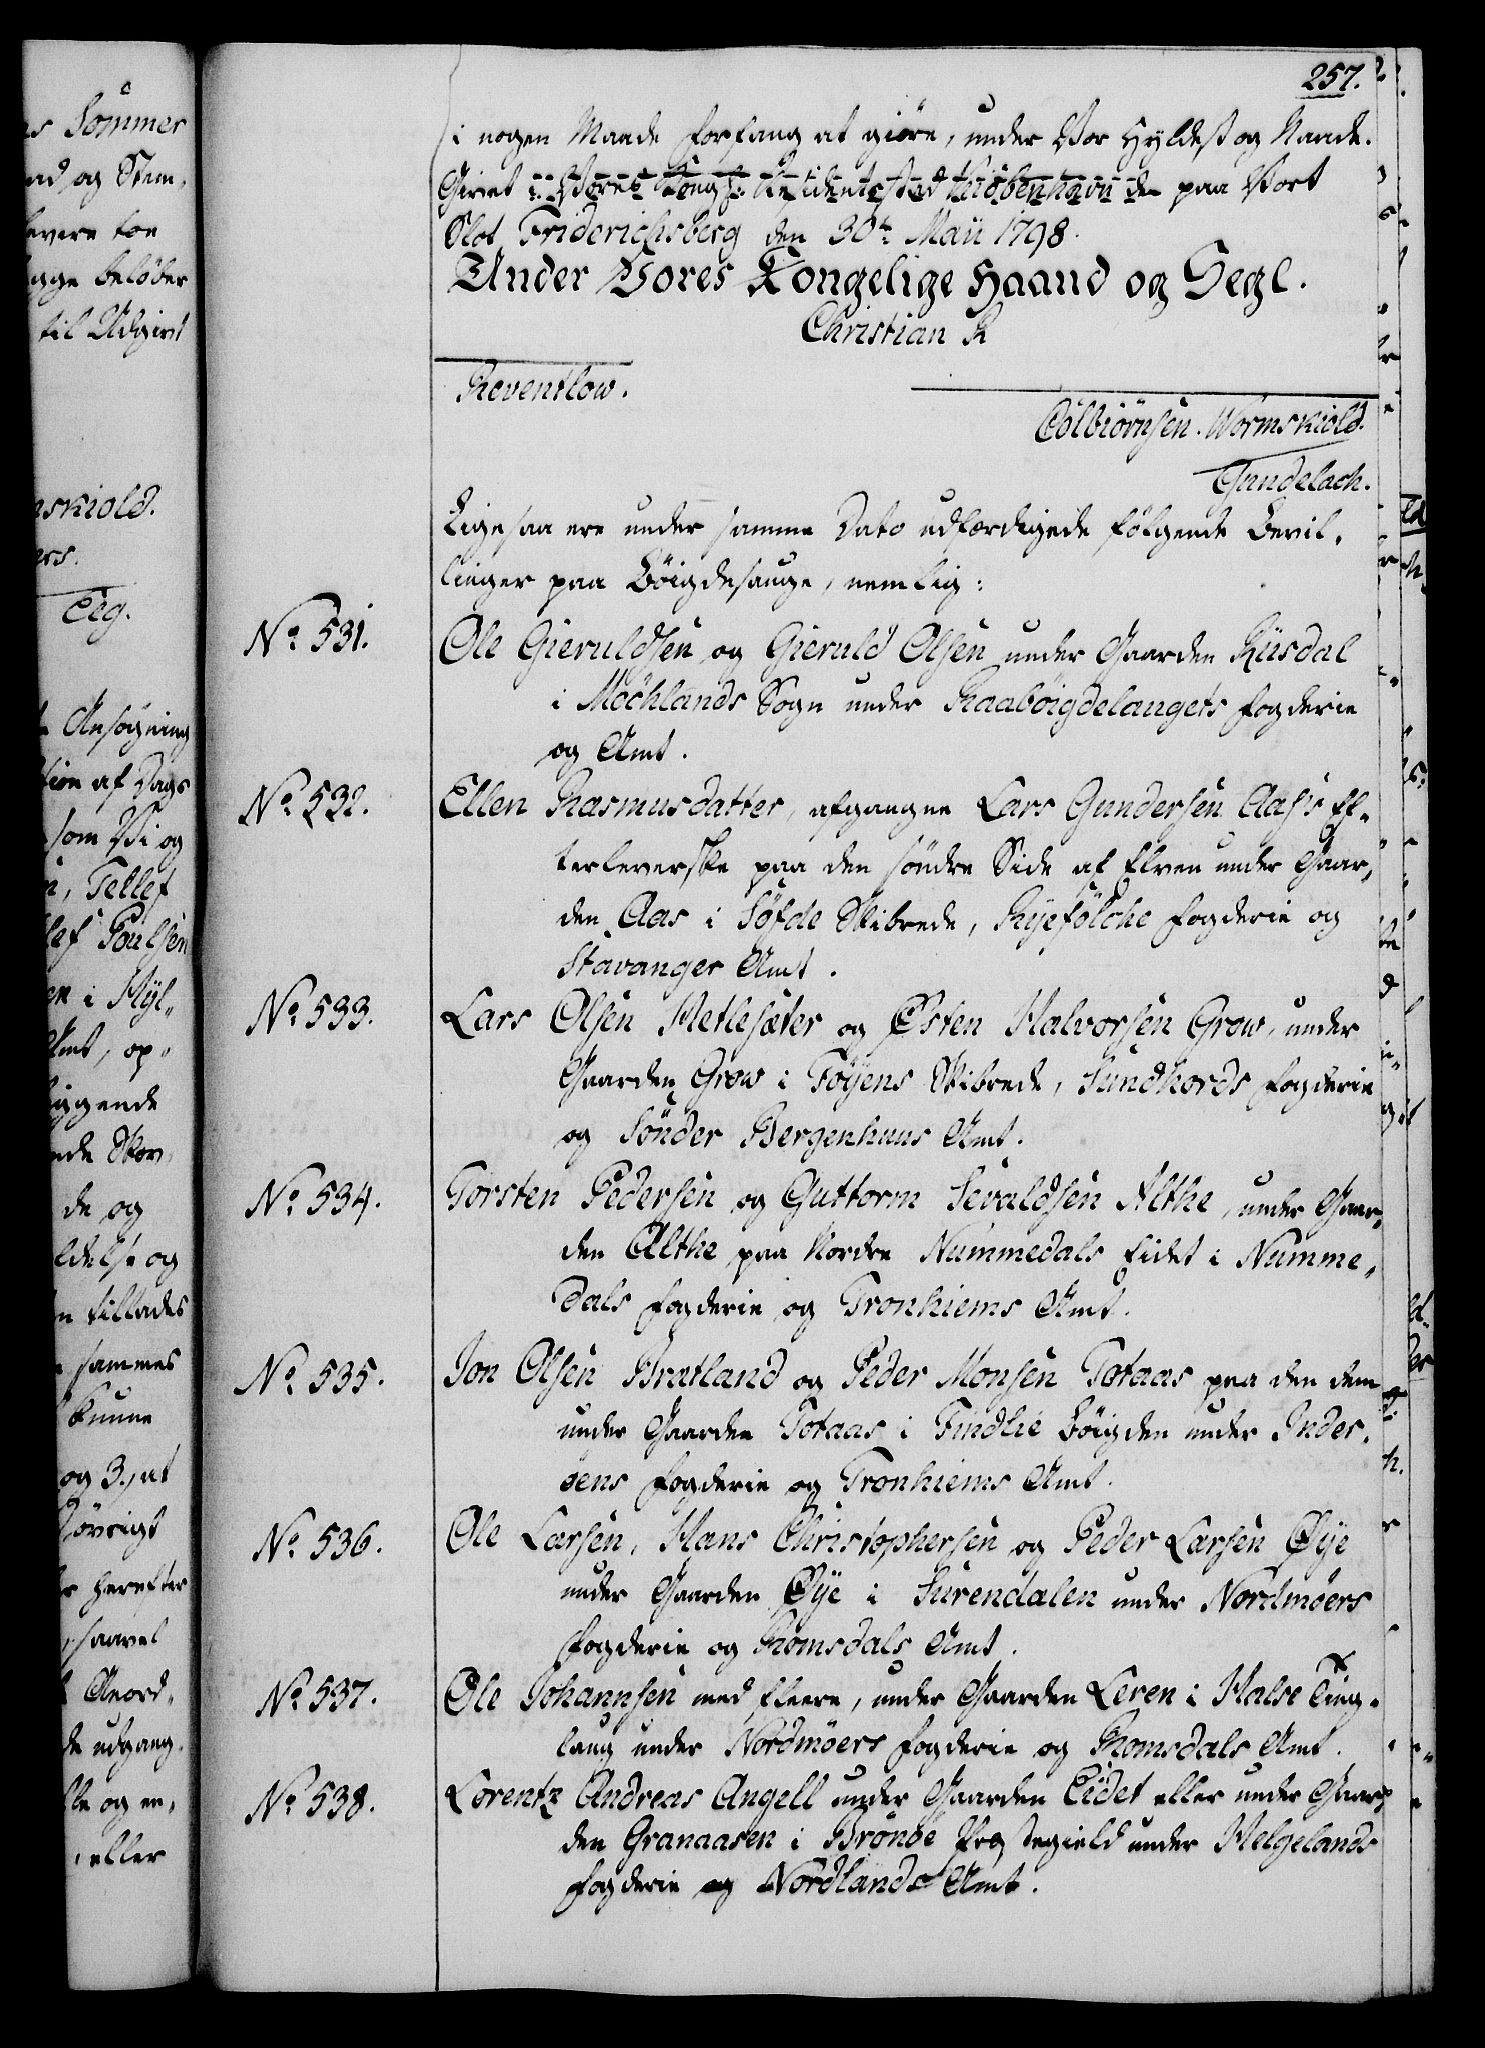 257.
i nogen Maade forfang at giöre, under Vor Hyldest og Naade.
Givet i Vores Kongl: Residentzstad Kiöbenhavn den paa Vort
Slot Friderichsberg den 30te Maii 1798.
Under Vores Kongelige Haand og Segl.
Christian R
Reventlow.
Colbiörnsen. Wormskiold.
Gundelach.
Ligesaa ere under samme Dato udfærdigede fölgende Bevil-
linger paa Böigdesauge, nemlig:
No 531. Ole Gieruldsen og Gieruld Olsen under Gaarden Riisdal
i Möchlands Sogn under Raaböigdelaugets Fogderie
og Amt.
No 532. Ellen Rasmusdatter, afgangne Lars Gundersen Aases Ef-
terleverske paa den söndre Side af Elven under Gaar-
den Aas i Söfde Skibrede, Ryefölche Fogderie og
Stavanger Amt.
No 533. Lars Olsen Hetlesæter og Østen Halvorsen Grow, under
Gaarden Grow i Föyens Skibrede, Sundhords Fogderie
og Sönder Bergenhuus Amt.
No 534. Torsten Pedersen og Guttorm Sevaldsen Althe, under Gaar-
den Althe paa Nordre Nummedals Eidet i Numme-
dals Fogderie og Tronhiems Amt.
No 535. Jon Olsen Bratland og Peder Monsen Totaas paa den dem
under Gaarden Totaas i Findlie Böigden under Inder-
öens Fogderie og Tronhiems Amt.
No 536. Ole Larsen, Hans Christophersen og Peder Larsen Øye
under Gaarden Øye i Surendalen under Nordmöers
Fogderie og Romsdals Amt.
No 537. Ole Johannsen med fleere, under Gaarden Leren i Halse Ting-
laug under Nordmöers Fogderie og Romsdals Amt.
No 538. Lorentz Andreas Angell under Gaarden Eidet eller under Gaar-
den Granaasen i Brönöe Præstegield under Helgelands
Fogderie og Nordlands Amt.